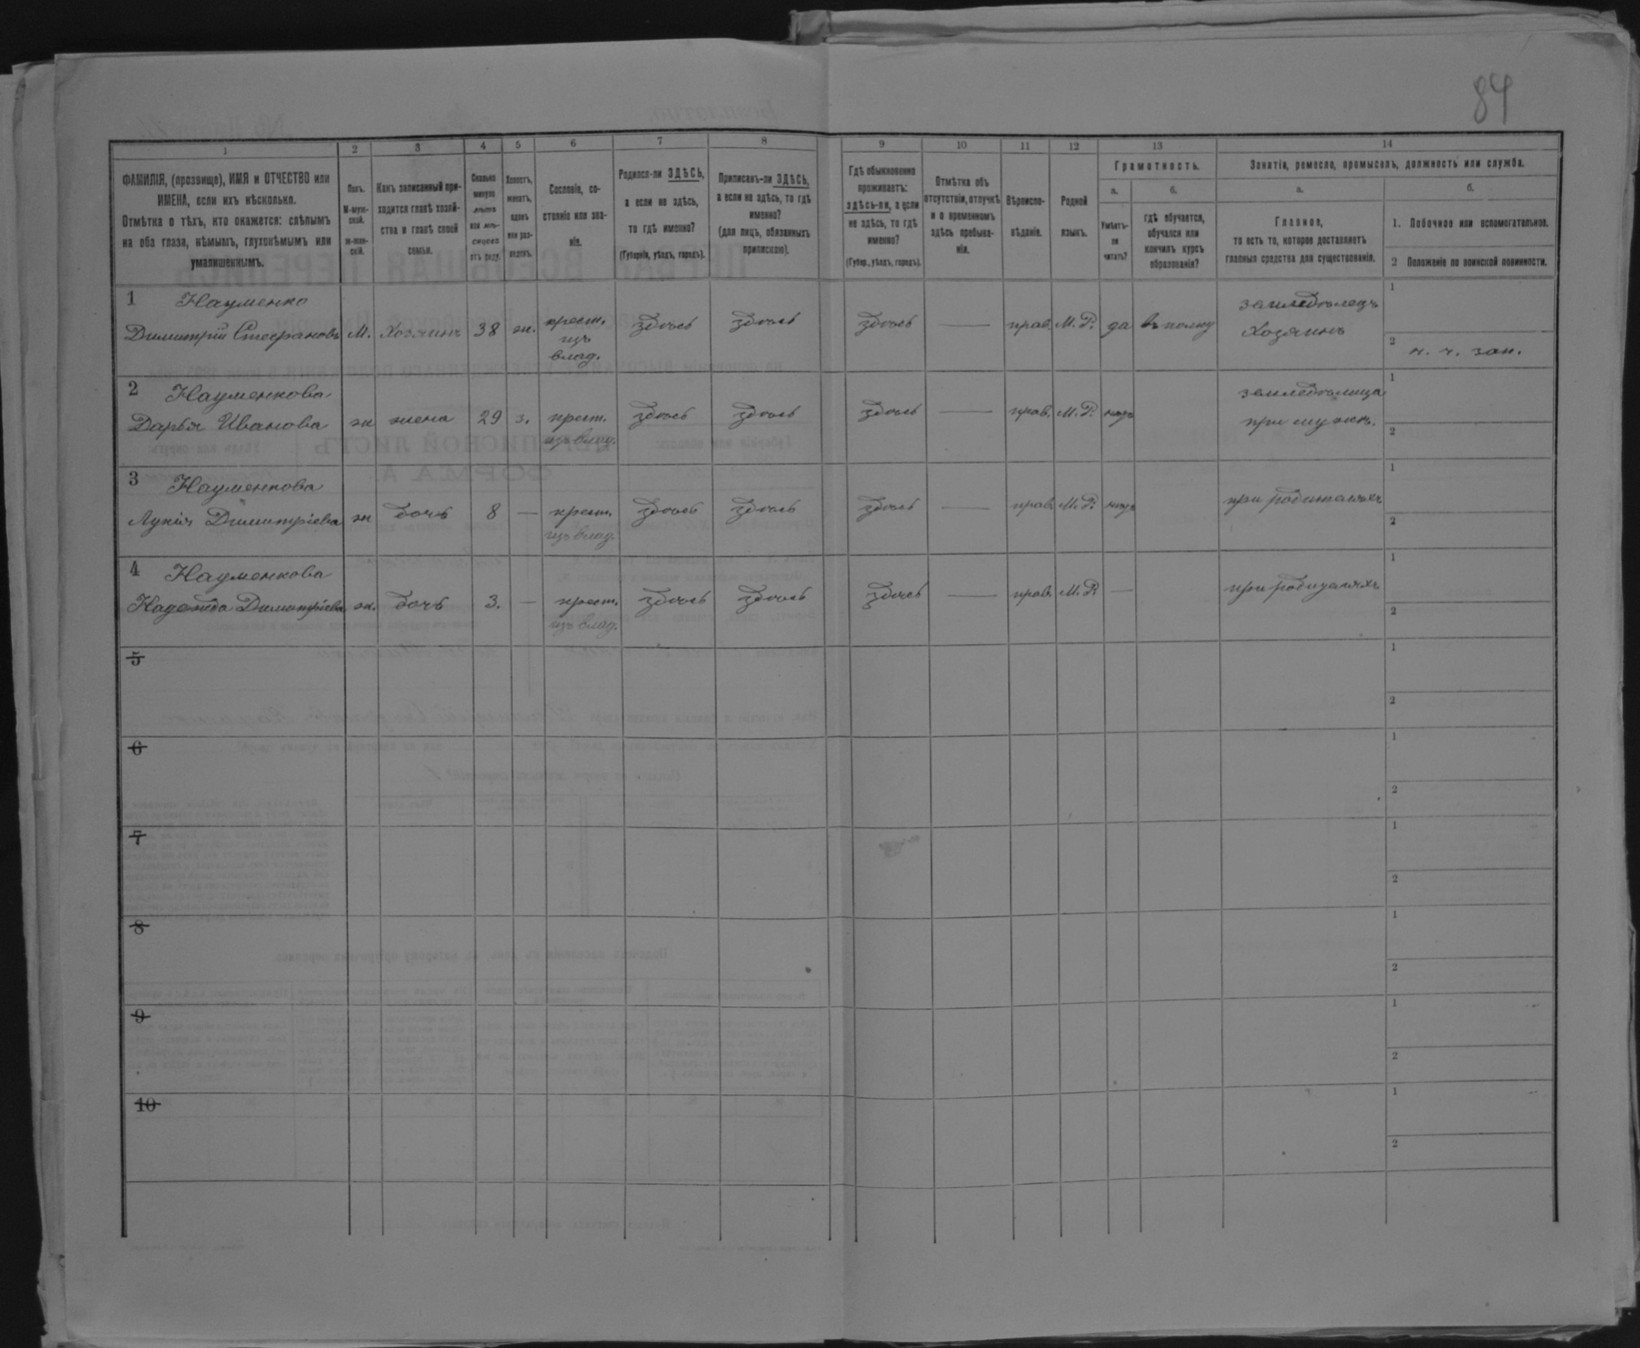 84
1 2 3 4 5 6 7 8 9 10 11 12 13 14
ФАМИЛІЯ, (прозвище), ИМЯ и ОТЧЕСТВО или
ИМЕНА, если ихъ нѣсколько.
Отмѣтка о тѣхъ, кто окажется: слѣпымъ
на оба глаза, нѣмымъ, глухонѣмымъ или
умалишеннымъ.
Полъ.
М-муж-
ской.
ж-жен-
скій.
Какъ записанный при-
ходится главѣ хозяй-
ства и главѣ своей
семьи.
Сколько
минуло
лѣтъ
или мѣ-
сяцевъ
отъ роду.
Холостъ,
женатъ,
вдовъ
или раз-
веденъ.
Сословіе, со-
стояніе или зва-
ніе.
Родился-ли ЗДѢСЬ,
а если не здѣсь,
то гдѣ именно?
(Губернія, уѣздъ, городъ).
Приписанъ-ли ЗДѢСЬ,
а если не здѣсь, то гдѣ
именно?
(для лицъ, обязанныхъ
припискою).
Гдѣ обыкновенно
проживаетъ:
здѣсь-ли, а если
не здѣсь, то гдѣ
именно?
(Губер., уѣздъ, городъ).
Отмѣтка объ
отсутствіи, отлучкѣ
и о временномъ
здѣсь пребыва-
ніи.
Вѣроиспо-
вѣданіе.
Родной
языкъ.
Грамотность.
а. б.
Умѣетъ-
ли
читать?
гдѣ обучается,
обучался или
кончилъ курсъ
образованія?
Занятіе, ремесло, промыселъ, должность или служба.
а. б.
Главное,
то есть то, которое доставляетъ
главныя средства для существованія.
1. Побочное или вспомогательное.
2 Положеніе по воинской повинности.
1 Науменко
Димитрій Стефановъ М. Хозяинъ 38 ж. крест. изъ влад. здѣсь здѣсь здѣсь — прав. М. Р. да въ полку земледѣлецъ Хозяинъ
1
2 н. ч. зап.
2 Науменкова
Дарья Иванова ж жена 29 з. крест. изъ влад. здѣсь здѣсь здѣсь — прав. М. Р. нѣтъ земледѣлица при мужѣ.
1
2
3 Науменкова
Лукія Димитріева ж дочь 8 — крест. изъ влад. здѣсь здѣсь здѣсь — прав. М. Р. нѣтъ при родителяхъ
1
2
4 Науменкова
Надежда Димитріева ж. дочь 3. — крест. изъ влад. здѣсь здѣсь здѣсь — прав. М. Р. — при родителяхъ
1
2
5
1
2
6
1
2
7
1
2
8
1
2
9
1
2
10
1
2